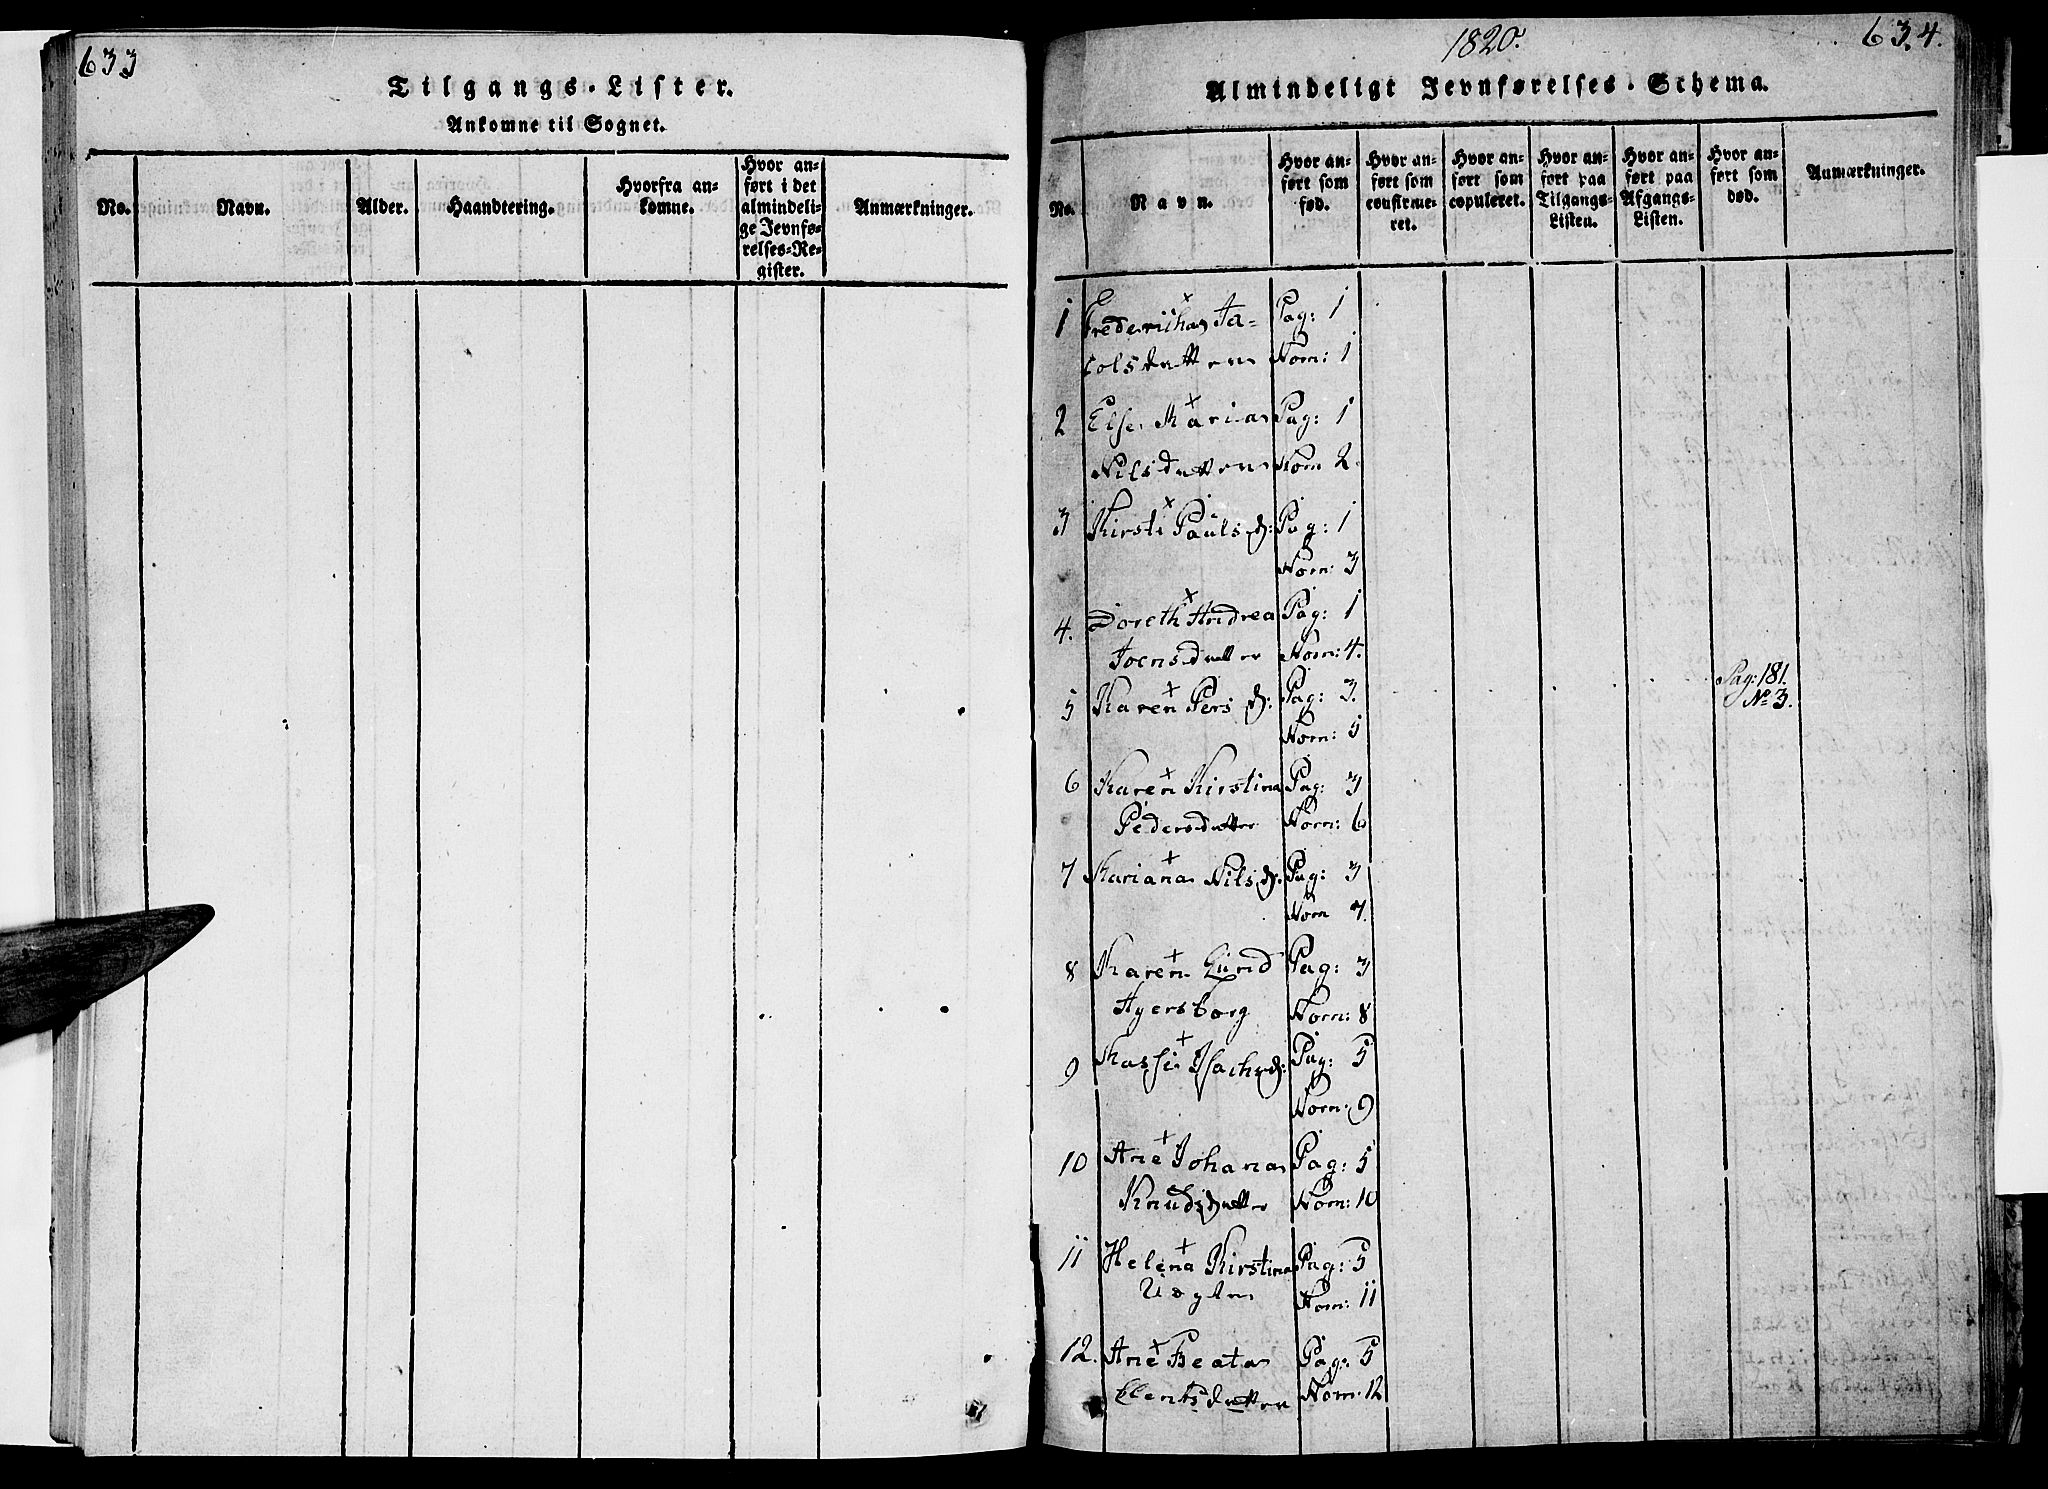 633
Tilgangs-Lister.
Ankomne til Sognet.
No.
Navn.
Alder.
Haandtering.
Hvorfra an-
komne.
Hvor an-
ført i det
almindeli-
ge Jevnfø-
relses-Re-
gister.
Anmærkninger.
1820.
634.
Almindeligt Jevnførelses-Schema.
No.
Navn.
Hvor an-
ført som
fød.
Hvor an-
ført som
confirme-
ret.
Hvor an-
ført som
copuleret.
Hvor an-
ført paa
Tilgangs-
Listen.
Hvor an-
ført paa
Afgangs-
Listen.
Hvor an-
ført som
død.
Anmærkninger.
1 Fredericha Ja- Pag: 1
cobsdatter Nom: 1
2 Else Maria Pag: 1
Nilsdatter Nom 2.
3 Kirsti Pauls d: Pag: 1
Nom: 3
4. Doreth Andrea Pag: 1
Joensdatter Nom: 4.
5 Karen Pers d: Pag: 3. Pag: 181.
Nom: 5 No 3.
6 Karen Kirstina Pag: 3
Pedersdatter Nom: 6
7 Mariana Nils d: Pag: 3
Nom 7.
8 Maren Lund Pag: 3
Hyersborg Nom: 8
9 Massi Isachs d: Pag: 5
Nom: 9
10 Ane Johana Pag: 5
Knudsdatter Nom: 10
11 Helena Kirstina Pag: 5
Nom: 11
12. Ane Beata Pag: 5
Clentsdatter Nom: 12